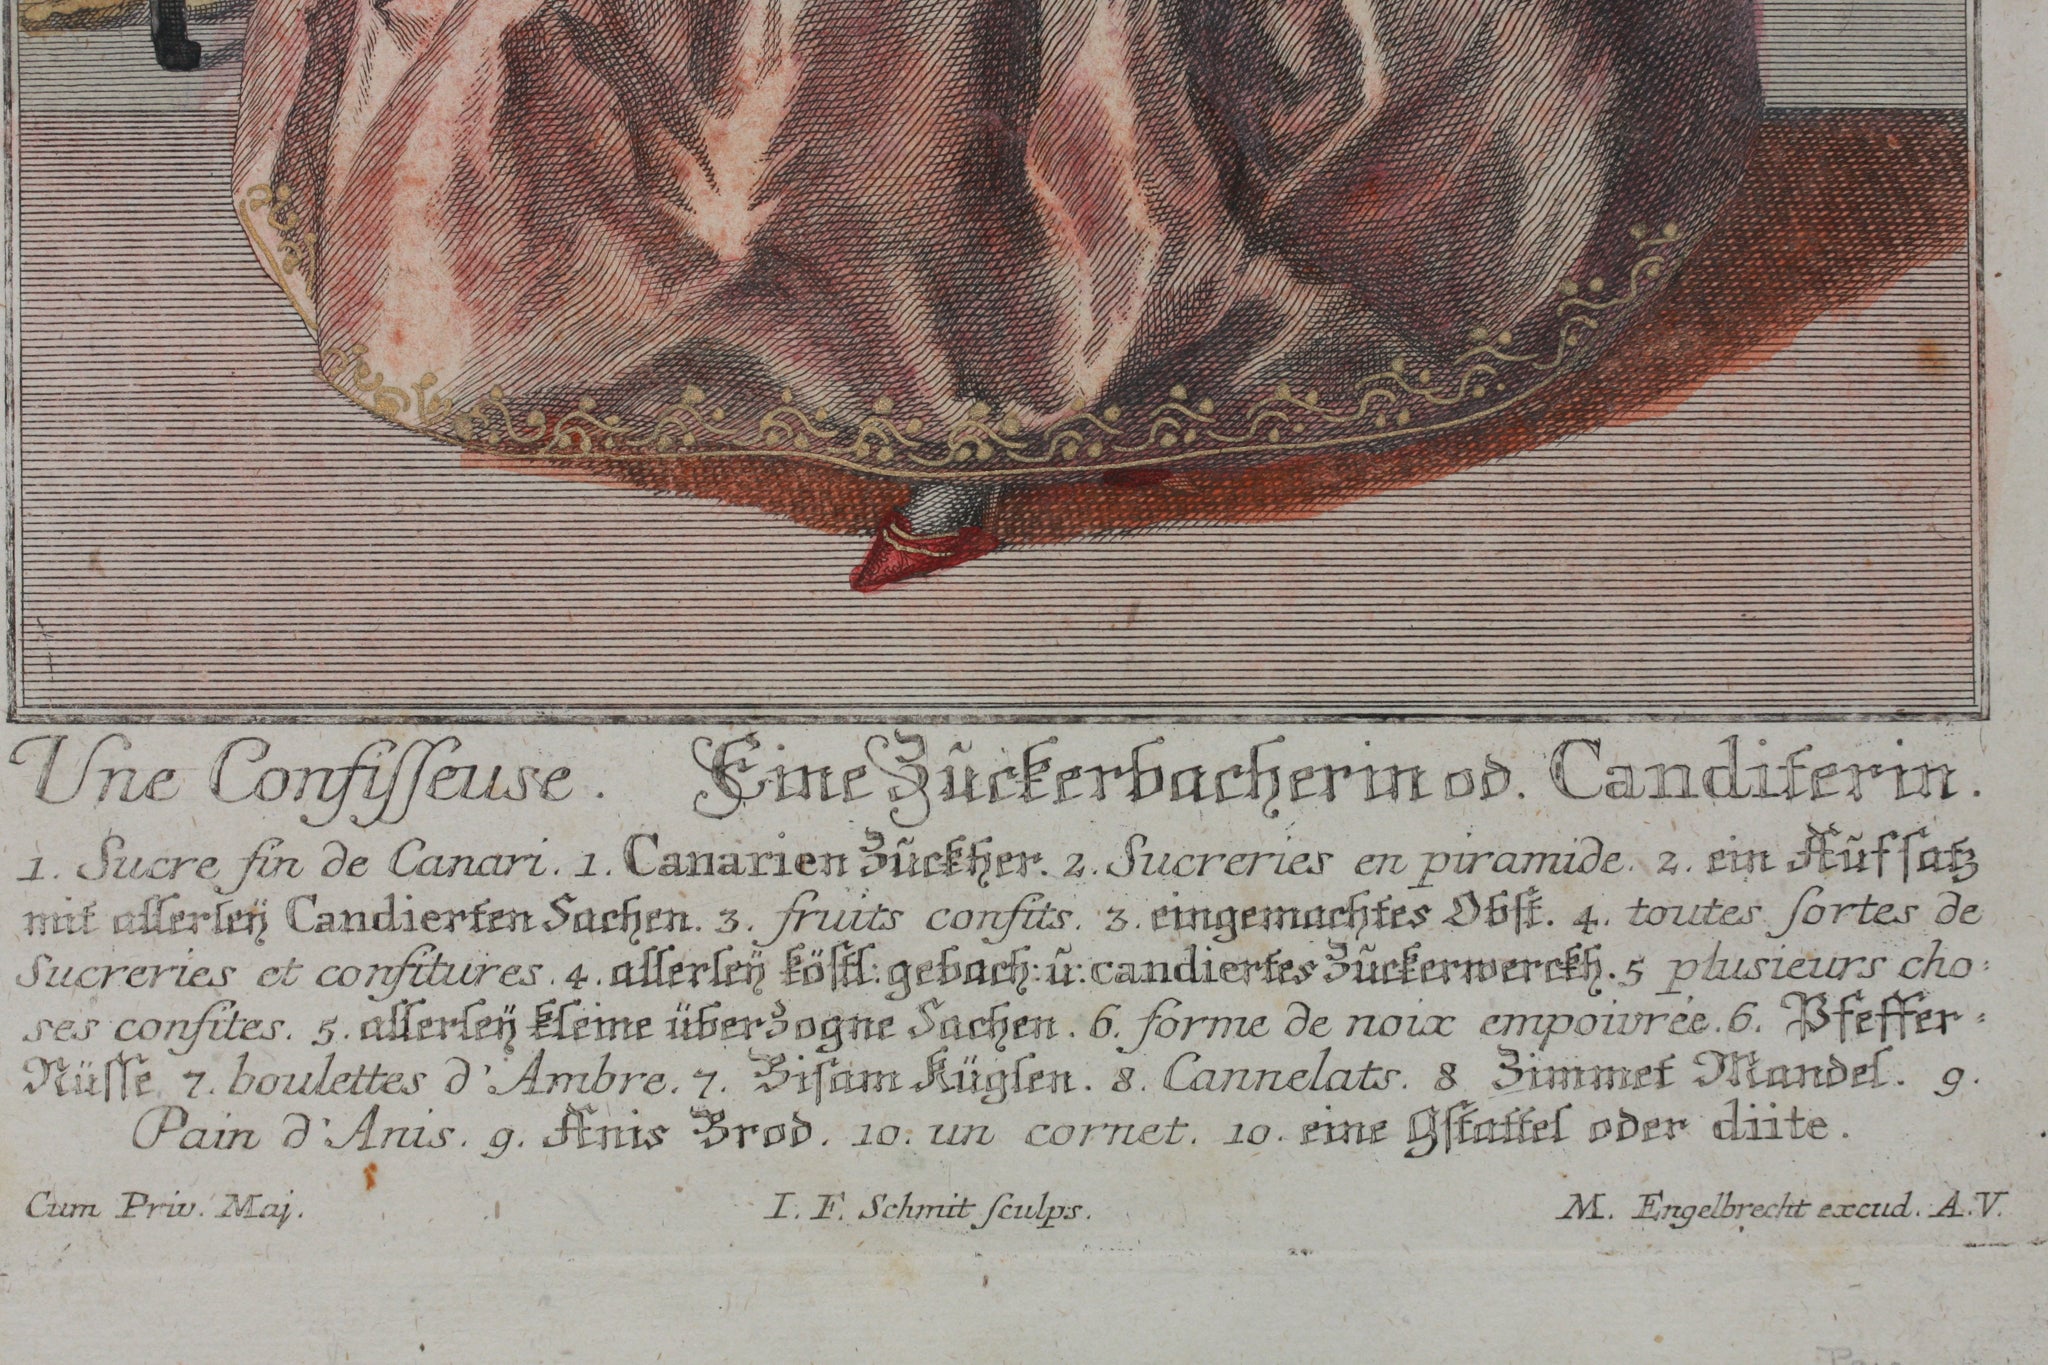 Une Confisseuse. Eine Zũckerbacherin od. Canditerin.
1. Sucre fin de Canari. 1. Canarien Zũckher. 2. Sucreries en piramide. 2. ein Aũfsatz
mit allerleÿ Candierten Sachen. 3. fruits confits. 3. eingemachtes Obst. 4. toutes sortes de
sucreries et confitures. 4. allerleÿ köstl: gebach: ũ: candiertes Zũckerwerckh. 5 plusieurs cho:
ses confites. 5. allerleÿ kleine überzogne Sachen. 6. forme de noix empoivrée. 6. Pfeffer:
Nüsse 7. boulettes d'Ambre. 7. Bisam Küglen. 8. Cannelats. 8 Zimmet Mandel. 9.
Pain d'Anis. 9. Anis Brod. 10. un cornet. 10. eine Gstattel oder diite.
Cum Priv. Maj. I. F. Schmit sculps. M. Engelbrecht excud. A.V.